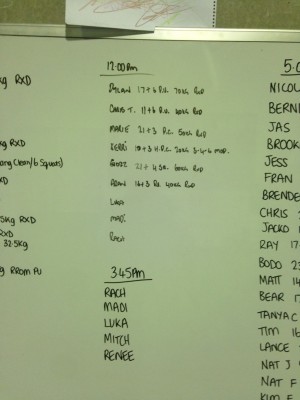 kg RXD
kg RXD
ong Clean/6 Squats)
RXD
5kg RXD
RXD
32.5kg
kg RROM PU
12:00pm
DYLAN 17+6 P.C. 70kg RXD
CHRIS T. 11+6 P.C. 60kg RXD
MARIE 21+3 P.C. 50kg RXD
KERRI 18+3 H.P.C. 20kg 3-4-6 MOD.
22+4 60kg RXD
16+3 P.C. 40kg RXD
LUKA
MADI
RACH
3:45Am
RACH
MADI
LUKA
MITCH
RENEE
5:0
NICOL
BERNI
JAS
BROOK
JESS
FRAN
BRENDE
CHRIS
JACKO
RAY 17
BODO 23
MATT 14
BEAR 17
TANYA C
TIM 16
LANCE
NAT J
NAT F
KIM F